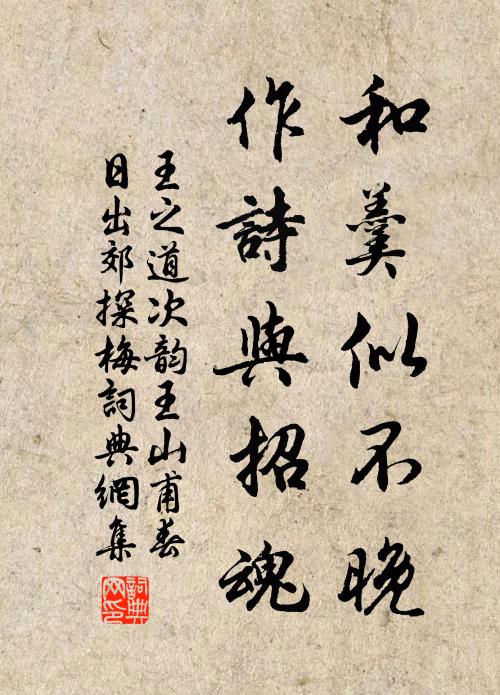 和羹似不晚
作詩與招魂
王之道次韵王山甫春
日出郊探梅詞典網集
詞典网印